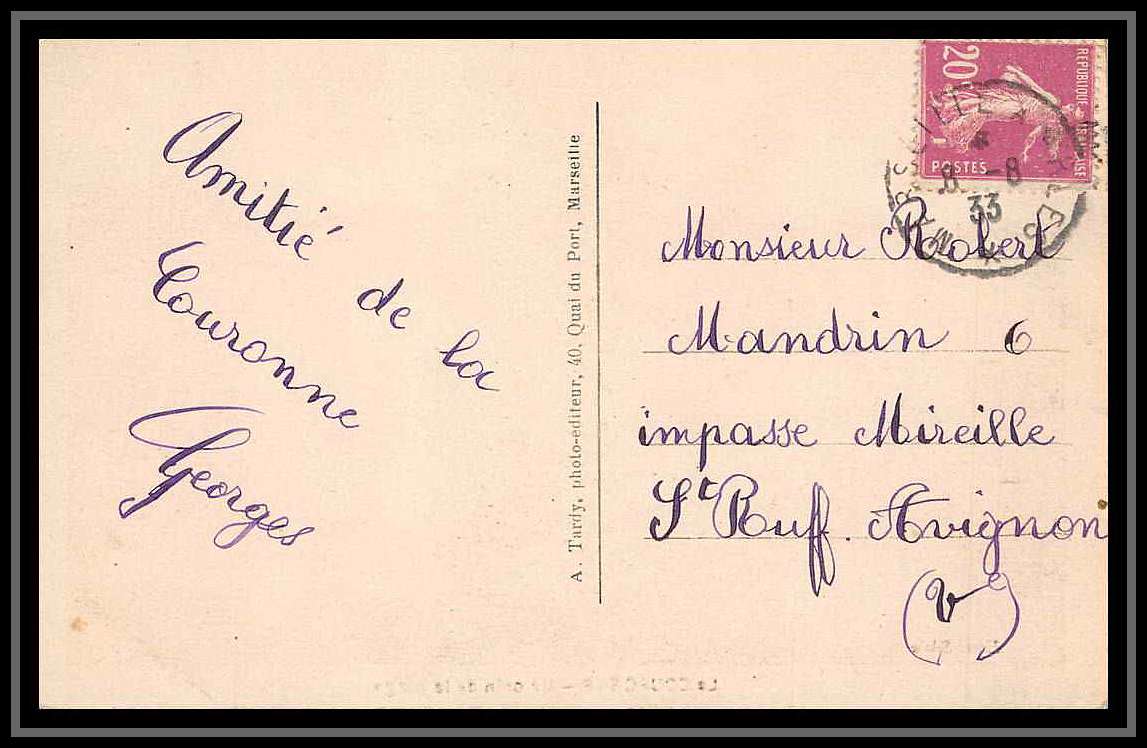 Amitié de la
Couronne
Georges
A. Tardy, photo-editeur, 40, Quai du Port, Marseille
20c
REPUBLIQUE FRANÇAISE
POSTES
8 -8
33
Monsieur Robert
Mandrin 6
impasse Mireille
St Ruff. Avignon
(Vse)